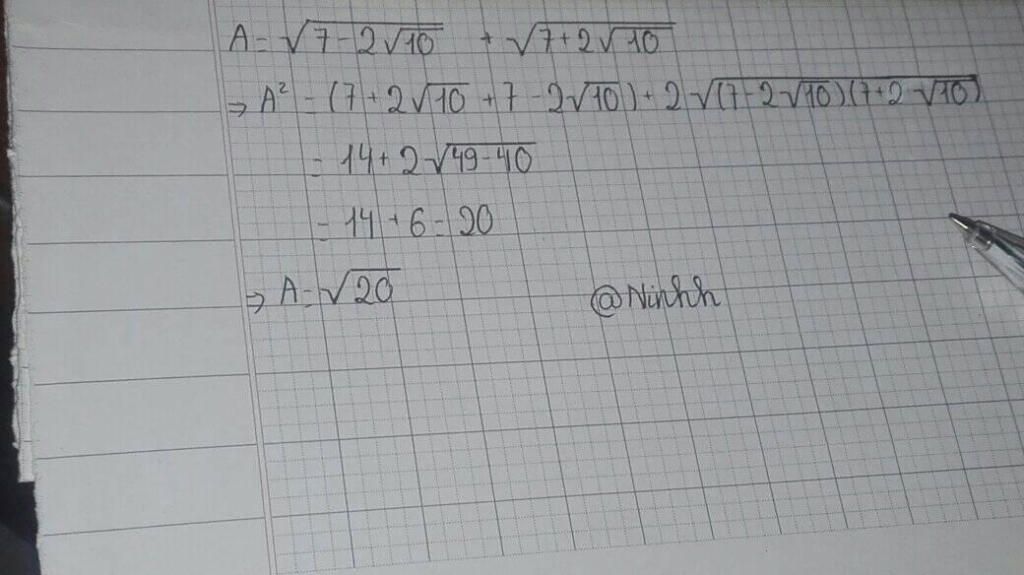 A = √(7 - 2√10) + √(7 + 2√10)
⇒ A² = (7 + 2√10 + 7 - 2√10) + 2√((7 - 2√10)(7 + 2√10))
= 14 + 2√(49 - 40)
= 14 + 6 = 20
⇒ A = √20
@Ninhh